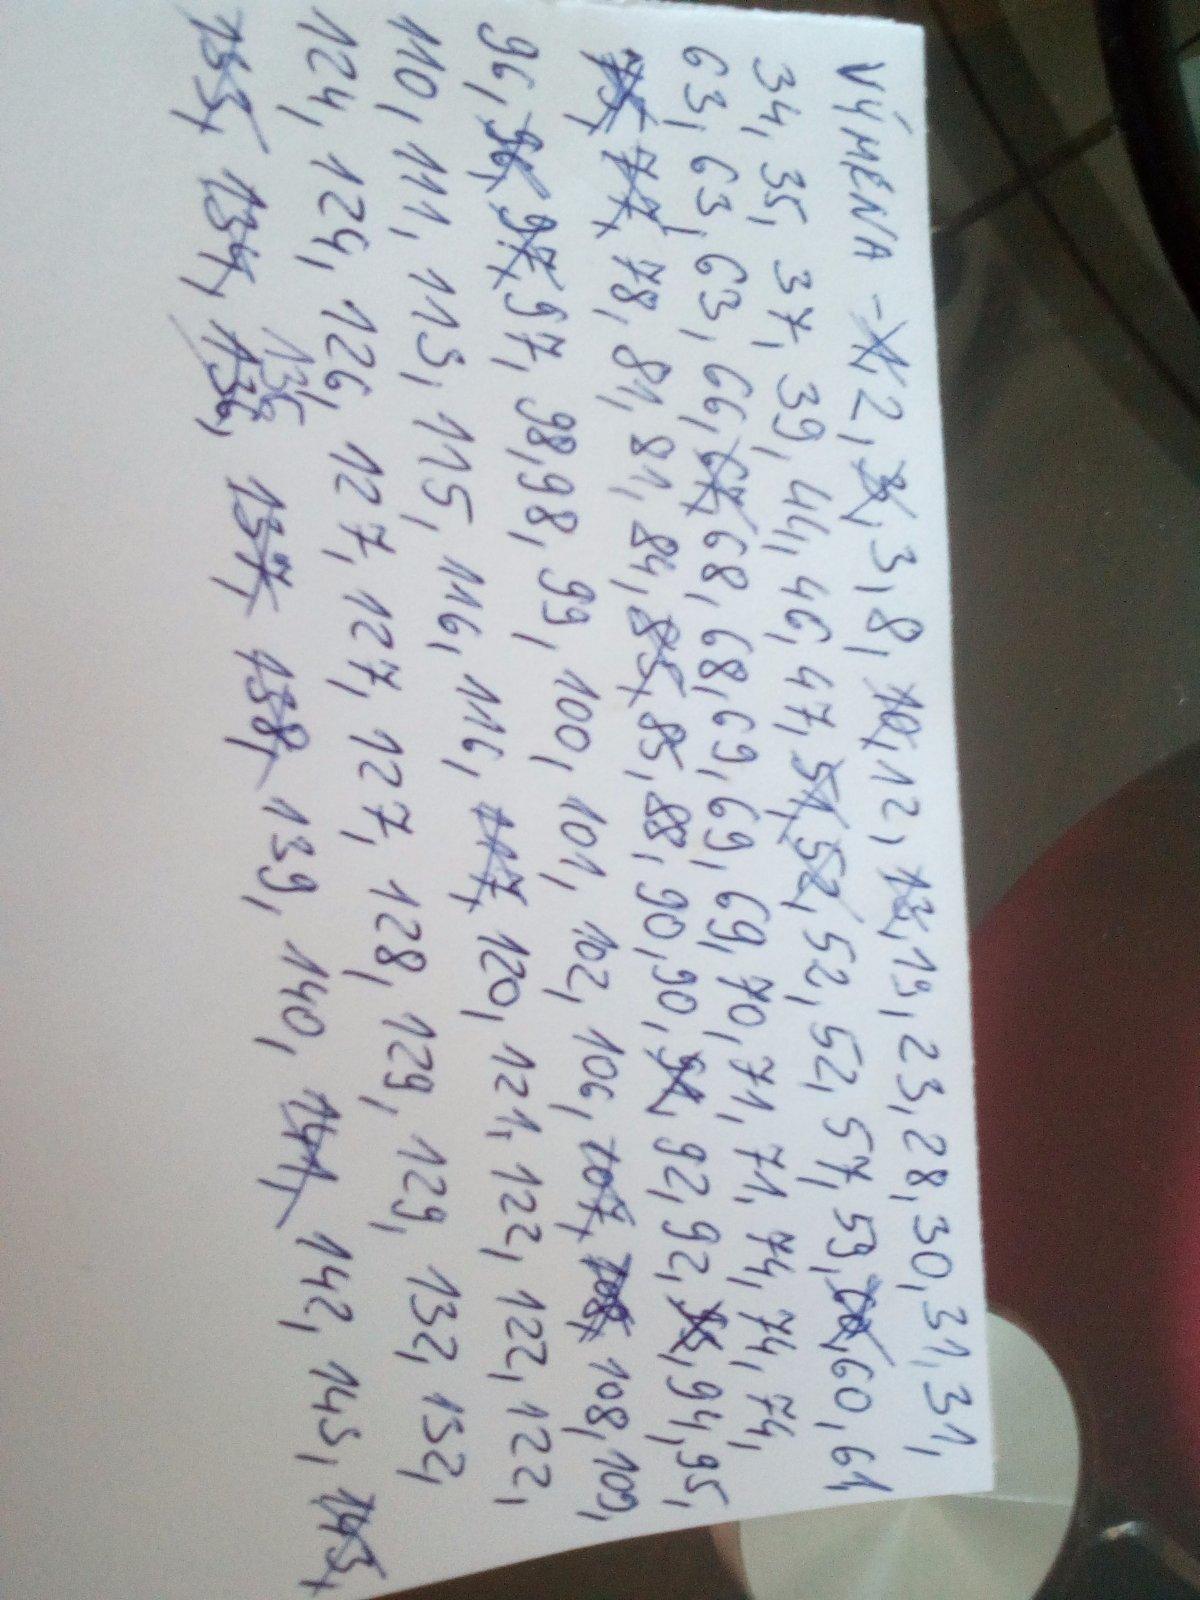 VÝMĚNA - 1, 2, 3, 3, 8, 10, 12, 13, 19, 23, 28, 30, 31, 31,
34, 35, 37, 39, 44, 46, 47, 51, 52, 52, 52, 57, 59, 60, 60, 61
63, 63, 63, 66, 67, 68, 68, 69, 69, 69, 70, 71, 71, 74, 74, 74,
75, 77, 78, 81, 81, 84, 85, 85, 88, 90, 90, 91, 92, 92, 94, 95,
96, 96, 97, 97, 98, 98, 99, 100, 101, 102, 106, 107, 108, 108, 109,
110, 111, 115, 115, 116, 116, 117, 120, 121, 122, 122, 122,
124, 124, 126, 127, 127, 127, 128, 129, 129, 132, 132,
133, 134, 136, 136, 137, 138, 139, 140, 141, 142, 143, 143,